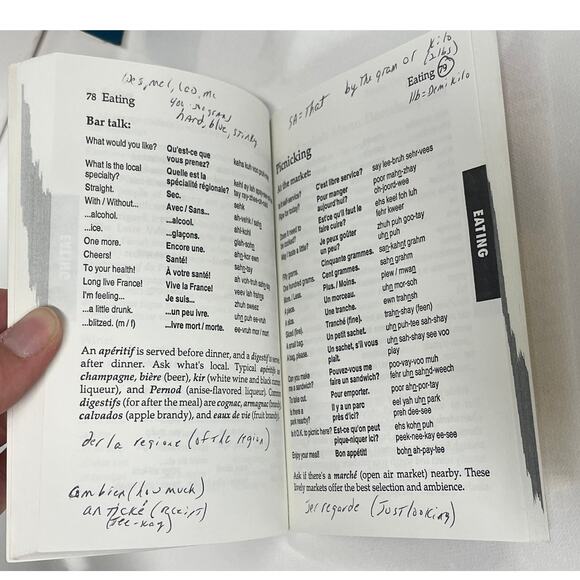 78 Eating
hard, blue, stinky
Bar talk:
What would you like? Qu'est-ce que
vous prenez?
What is the local Quelle est la
specialty? spécialité régionale?
Straight. Sec. sehk
With / Without... Avec / Sans...
...alcohol. ...alcool. ahl-kohl
...ice. ...glaçons.
One more. Encore une. ahn-kor ewn
Cheers! Santé! sahn-tay
To your health! À votre santé!
Long live France! Vive la France! veev lah frahns
I'm feeling... Je suis... zhuh sweez
...a little drunk. ...un peu ivre. uhn puh ee-vruh
...blitzed. (m / f) ...ivre mort / morte. ee-vruh mor / mort
An apéritif is served before dinner, and a digestif is served
after dinner. Ask what's local. Typical apéritifs
champagne, bière (beer), kir (white wine and black currant
liqueur), and Pernod (anise-flavored liqueur). Common
digestifs (for after the meal) are cognac, armagnac (brandy),
calvados (apple brandy), and eaux de vie (fruit brandy).
der la regione (of the region)
combien (how much)
an tické (receipt)
(tee-kay)
SA = That by the gram or kilo
(2 lbs)
Eating 79
1lb = Demi kilo
Picnicking
At the market:
Self service? C'est libre service? say lee-bruh sehr-vees
Ripe for today? Pour manger poor mahn-zhay
aujourd'hui? oh-joord-wee
Does it need to Est-ce qu'il faut le ehs keel foh luh
be cooked? faire cuire? fehr kweer
May I taste a little? Je peux goûter zhuh puh goo-tay
un peu? uhn puh
Fifty grams. Cinquante grammes. san-kahnt grahm
One hundred grams. Cent grammes. sahn grahm
More. / Less. Plus. / Moins. plew / mwan
A piece. Un morceau. uhn mor-soh
A slice. Une tranche. ewn trahnsh
Sliced (fine). Tranché (fine). trahn-shay (feen)
A small bag. Un petit sachet. uhn puh-tee sah-shay
A bag, please. Un sachet, s'il vous uhn sah-shay see voo
plaît. play
Can you make Pouvez-vous me poo-vay-voo muh
me a sandwich? faire un sandwich? fehr uhn sahnd-weech
To take out. Pour emporter. poor ahn-por-tay
Is there a Il y a un parc eel yah uhn park
park nearby? près d'ici? preh dee-see
Is it O.K. to picnic here? Est-ce qu'on peut ehs kohn puh
pique-niquer ici? peek-nee-kay ee-see
Enjoy your meal! Bon appétit! bohn ah-pay-tee
Ask if there's a marché (open air market) nearby. These
lively markets offer the best selection and ambience.
Je regarde (Just looking)
EATING